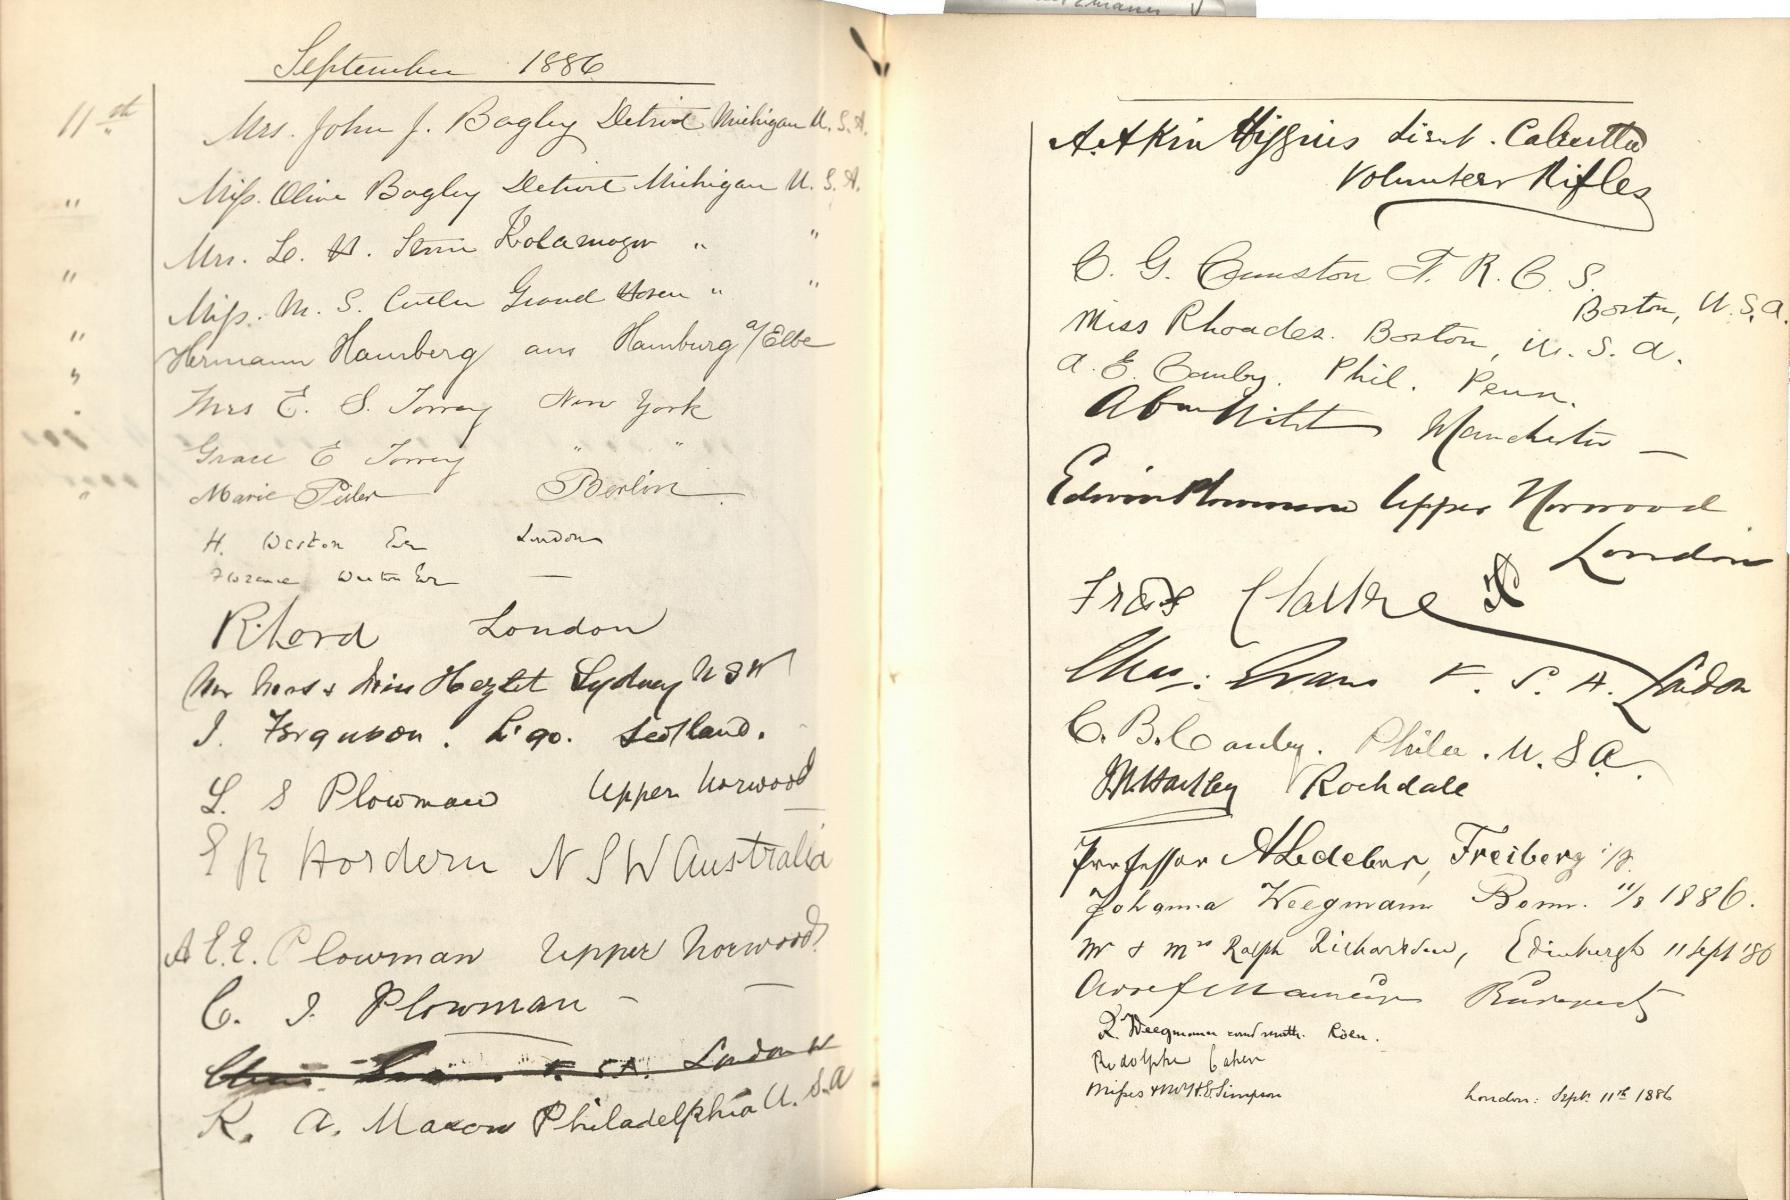 September 1886
11st Mrs. John J. Bagley Detroit Michigan U.S.A.
" Miss. Olive Bagley Detroit Michigan U.S.A.
" Mrs. L. H. Kalamazoo " "
" Miss. M. S. Cutler Grand Haven " "
" Hermann Hamberg aus Hamburg a/Elbe
Mrs E. S. Torrey New York
Grace E Torrey " "
Marie Berlin
H. Weston Esq London
Florence Weston Esq —
R. Lord London
Mr Mrs & Miss Hezlet Sydney NSW
J. Ferguson. L'go. Scotland.
L. S Plowman Upper Norwood
E R Hordern N S W Australia
A E. E. Plowman Upper Norwood
C. J. Plowman — —
London W
R. A. Maxon Philadelphia U.S.A
A. Atkin Higgins Lieut. Calcutta
Volunteer Rifles
C. G. Cumston F. R. C. S.
Boston, U.S.A.
Miss Rhoades. Boston, U.S.A.
A. E. Canby. Phil. Penn.
Manchester —
Edwin Plowman Upper Norwood
London
Fras Clarke
Chas: Evans F. S. A. London
C. B. Canby. Phila. U.S.A.
J M Hartley Rochdale
Professor A Ledebur, Freiberg i/S.
Johanna Weegmann Bonn. 11/9 1886.
Mr & Mrs Ralph Richardson, Edinburgh 11 Sept '86
Budapest
R. Weegmann cand math. Köln.
Rudolph Cahen
Misses & Mr H. E. Simpson London: Sept. 11th 1886